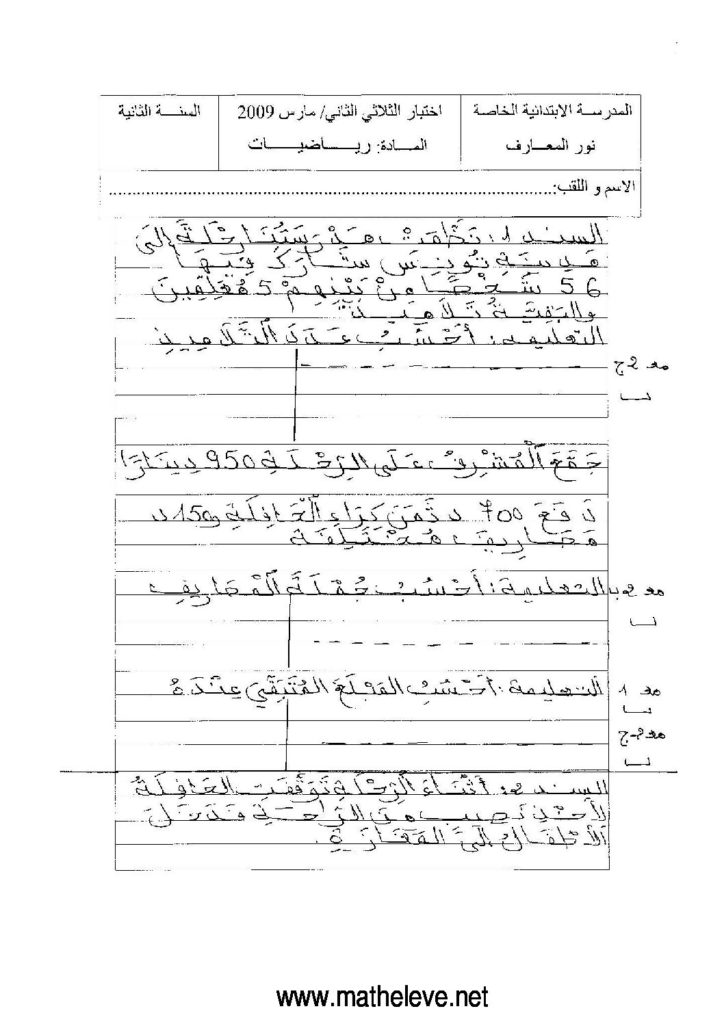 المدرسة الإبتدائية الخاصة
نور المعارف
اختبار الثلاثي الثاني/ مارس 2009
المادة: ريـاضيـات
السنة الثانية
الاسم و اللقب:
السند 1: نَظَّمَتْ مَدْرَسَتُنَا رِحْلَةً إِلَى
مَدِينَةِ تُونِسَ شَارَكَ فِيهَا
56 شَخْصًا مِنْ بَيْنِهِمْ 5 مُعَلِّمِينَ
والبَقِيَّةُ تَلَامِيذُ
التعليمة: أَحْسُبُ عَدَدَ التَّلَامِيذِ
مع 2ج
جَمَّعَ الْمُشْرِفُ عَلَى الرِّحْلَةِ 950 دِينَارًا
دَفَعَ 700 د ثَمَنَ كِرَاءِ الْحَافِلَةِ و150 د
مَصَارِيفَ مُخْتَلِفَة
التعليمة: أَحْسُبُ جُمْلَةَ الْمَصَارِيفِ
مع 2ب
التعليمة: أَحْسُبُ المَبْلَغَ المُتَبَقِّيَ عِنْدَهُ
مع 1
مع 2-ج
السند 2: أَثْنَاءَ الرِّحْلَةِ تَوَقَّفَتِ الحَافِلَةُ
لأَخْذِ نَصِيبٍ مِنَ الرَّاحَةِ فَدَخَلَ
الأَطْفَالُ إِلَى المَغَازَةِ.
www.matheleve.net